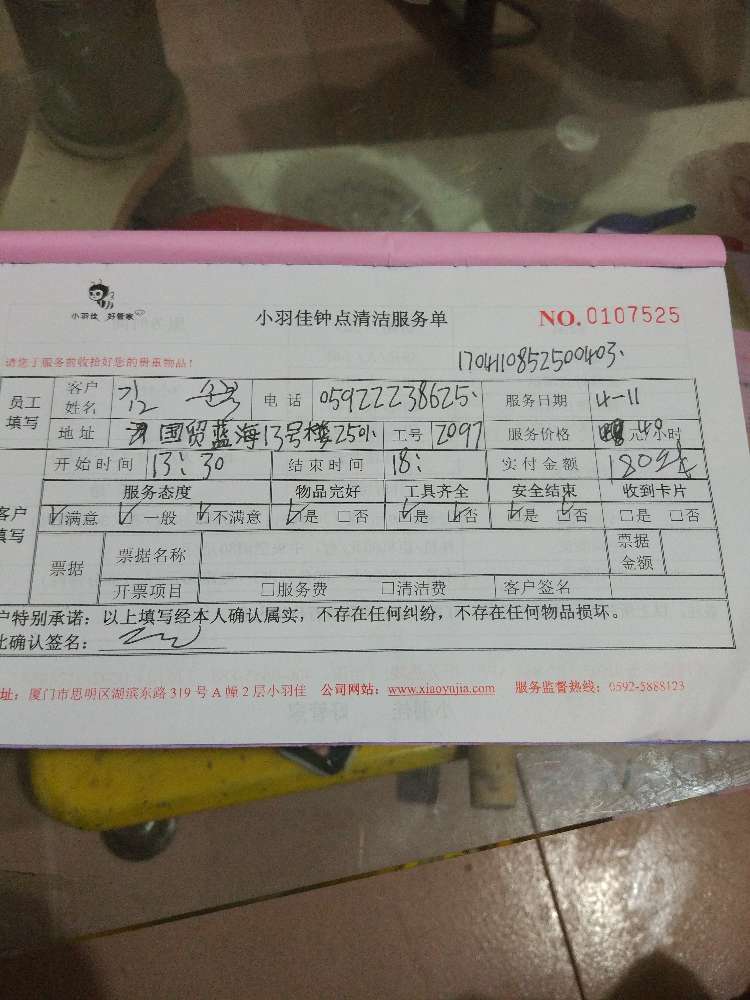 小羽佳 好管家
小羽佳钟点清洁服务单
NO.0107525
请您于服务前收拾好您的贵重物品!
1704110852500403.
员工填写 客户姓名 电话 05922238625. 服务日期 4-11
地址 国贸蓝海13号楼2501 工号 2097 服务价格 40元/小时
开始时间 13:30 结束时间 18: 实付金额 180
客户填写 服务态度 物品完好 工具齐全 安全结束 收到卡片
☑满意 ☑一般 ☑不满意 ☑是 □否 ☑是 ☑否 ☑是 ☑否 □是 □否
票据 票据名称 票据金额
开票项目 □服务费 □清洁费 客户签名
户特别承诺:以上填写经本人确认属实,不存在任何纠纷,不存在任何物品损坏。
此确认签名:
址:厦门市思明区湖滨东路319号A幢2层小羽佳 公司网站:www.xiaoyujia.com 服务监督热线:0592-5888123